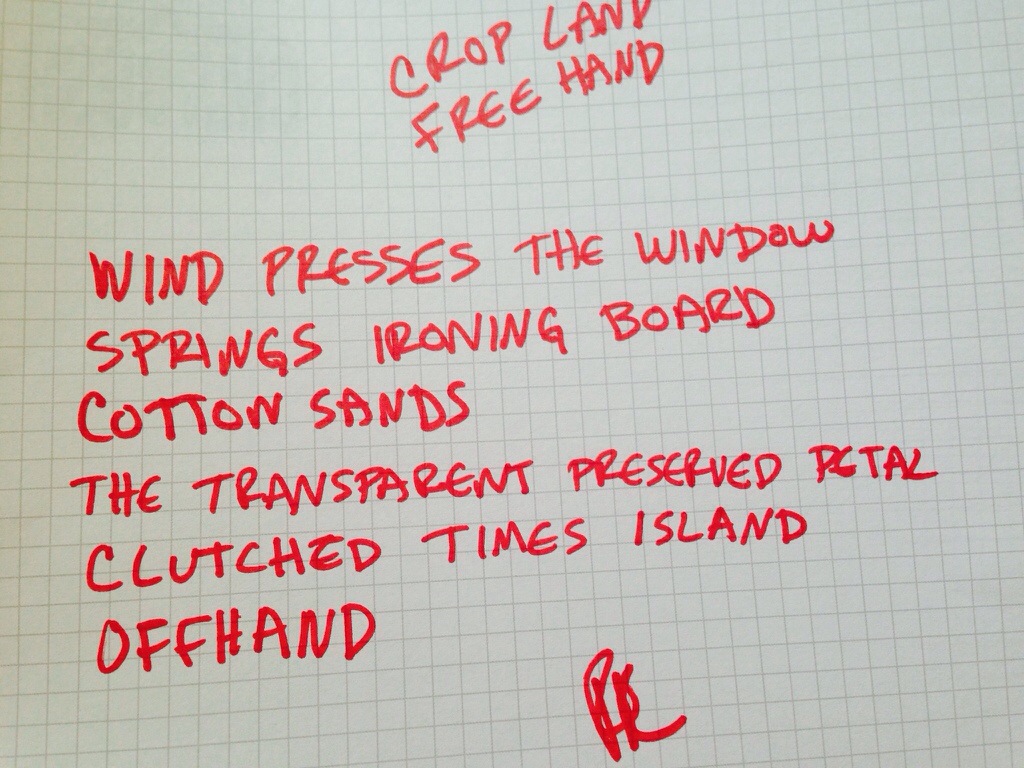 CROP LAND
FREE HAND
WIND PRESSES THE WINDOW
SPRINGS IRONING BOARD
COTTON SANDS
THE TRANSPARENT PRESERVED PETAL
CLUTCHED TIMES ISLAND
OFFHAND